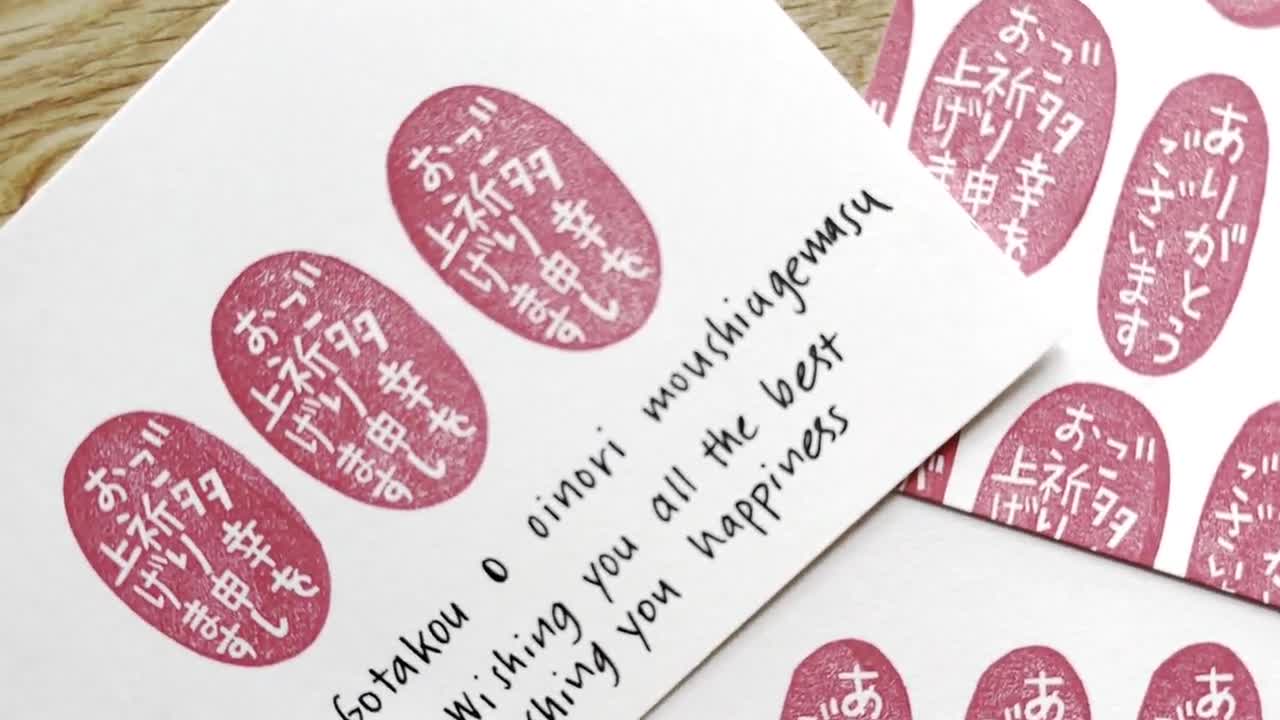 ご多幸を
お祈り申し
上げます
ご多幸を
お祈り申し
上げます
ご多幸を
お祈り申し
上げます
Gotakou o oinori moushiagemasu
Wishing you all the best
shing you happiness
ご多幸を
お祈り申
上げま
ありがとう
ございます
ご多
お祈り
上げ
ござい
あ
あ
あ